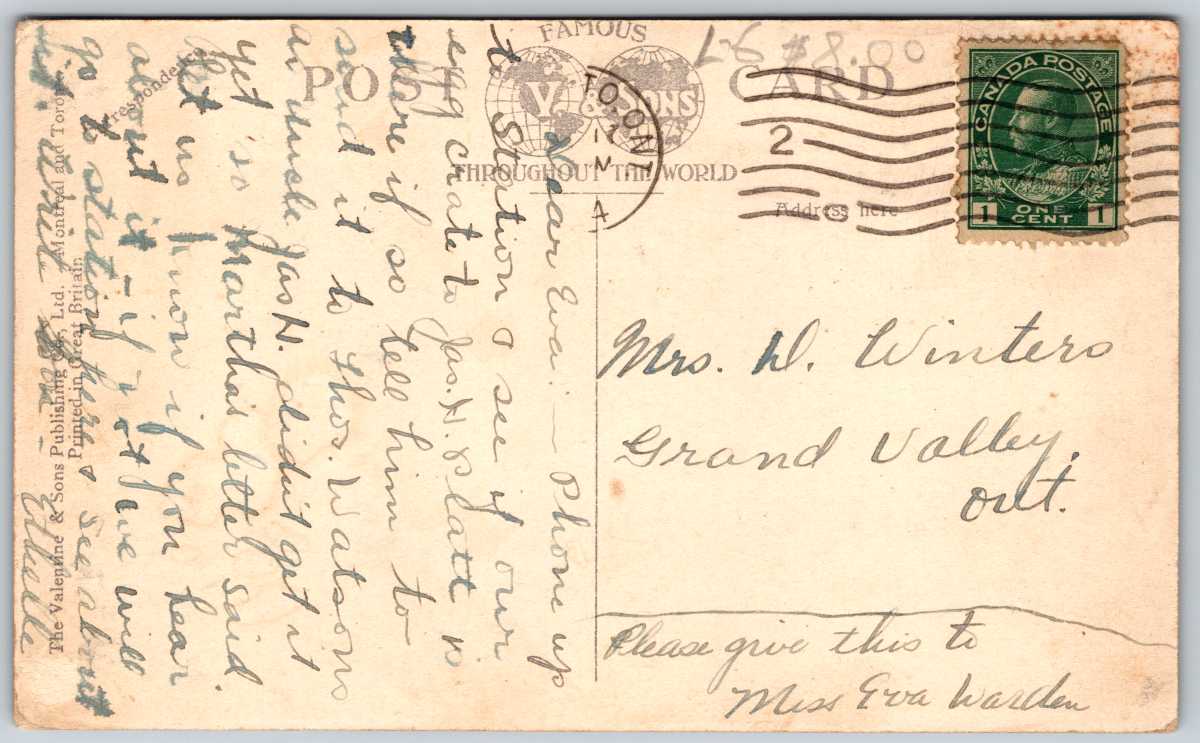 FAMOUS
POST CARD
V & SONS
THROUGHOUT THE WORLD
L-6 $8.00
TO, ONT
2
Address here
CANADA POSTAGE
1 ONE CENT 1
Dear Eva: — Phone up
to Station & see if our
egg crate to Jas. H. Platt is
there if so tell him to
send it to Thos. Watsons
an uncle Jas H. didn't get it
yet so Martha's letter said.
Let us know if you hear
about it — if not we will
go to station here & see about
it.
Ethelle
The Valentine & Sons Publishing Co., Ltd. Montreal and Toronto
Printed in Great Britain
Mrs. D. Winters
Grand Valley,
Ont.
Please give this to
Miss Eva Warden